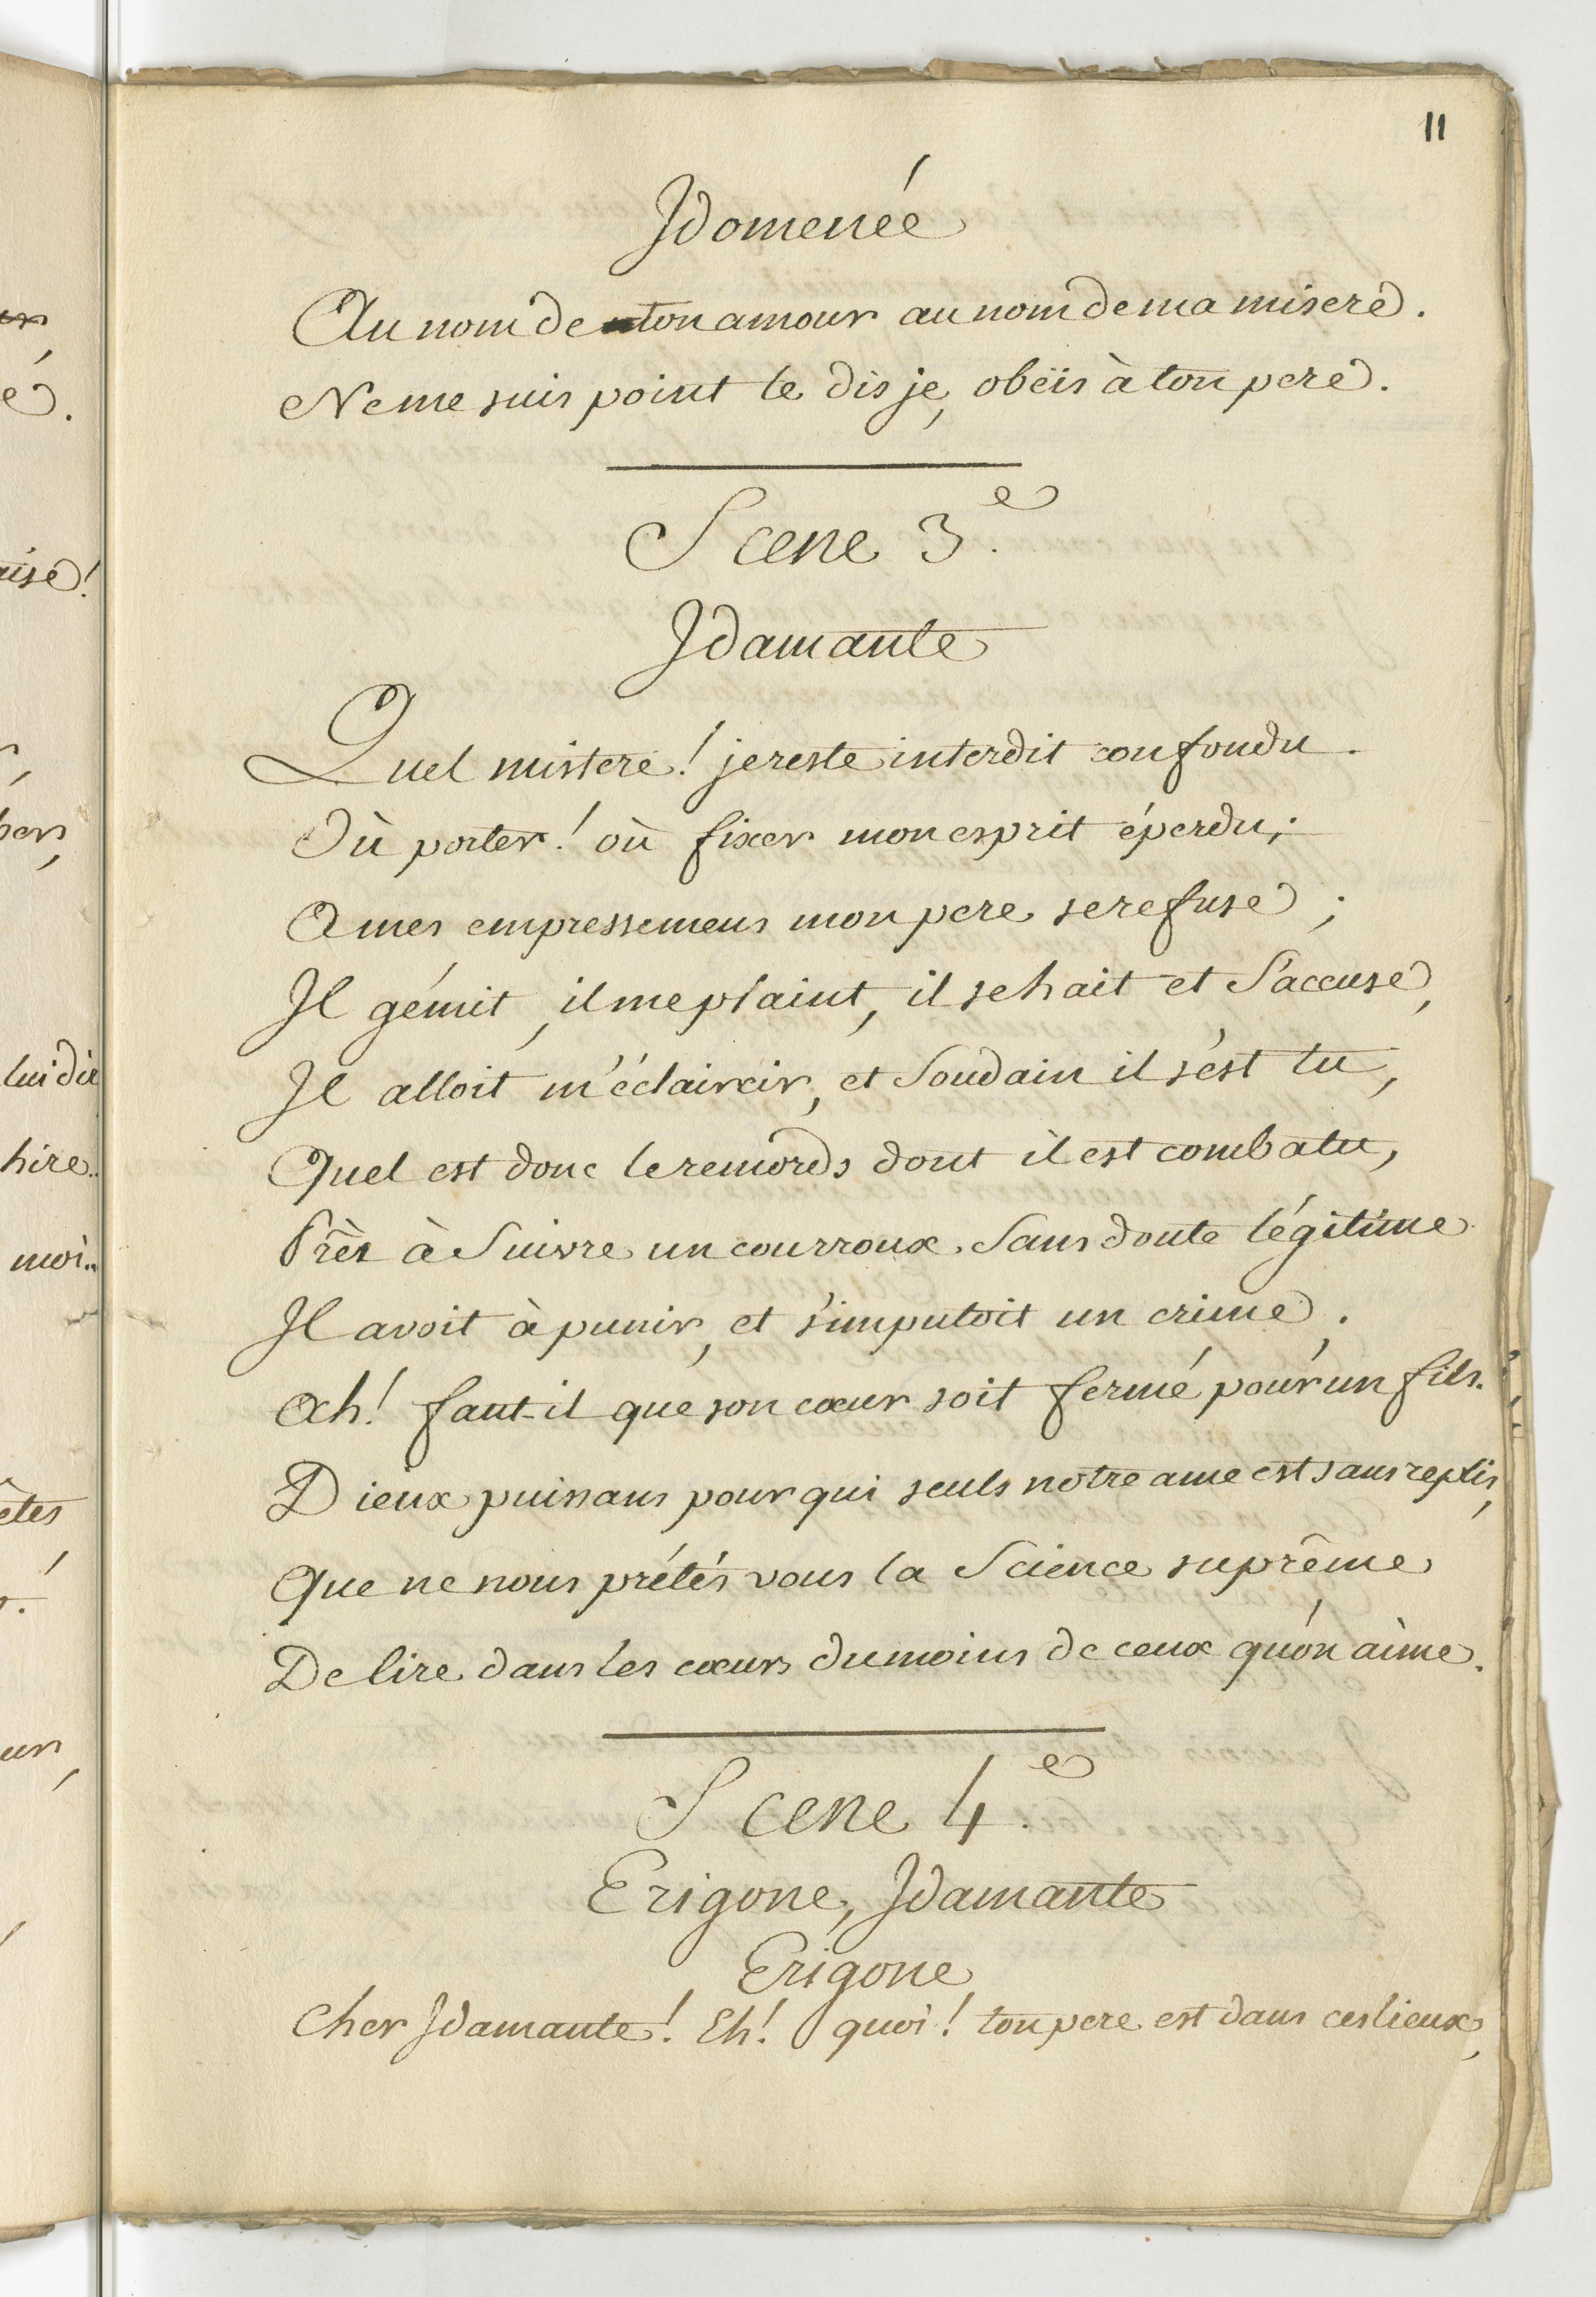 11
Idomenée
Au nom de ton amour au nom de ma misere.
Ne me suis point te dis je, obéïs à ton pere.
Scene 3.e
Idamante
Quel mistere! je reste interdit confondu.
Où porter! où fixer mon esprit éperdu;
A mes empressemens mon pere se refuse;
Il gémit, il me plaint, il se hait et S'accuse,
Il alloit m'éclaircir, et Soudain il s'est tu,
Quel est donc le remords dont il est combatu,
Près à Suivre un courroux Sans doute légitime
Il avoit à punir, et s'imputoit un crime.
Ah! faut-il que son cœur soit fermé pour un fils.
Dieux puissans pour qui seuls notre ame est sans replis,
Que ne nous prétés vous la Science suprême
De lire dans les cœurs du moins de ceux qu'on aime.
Scene 4.e
Erigone, Idamante
Erigone
Cher Idamante! Eh! quoi! ton pere est dans ces lieux,
é.
aise!
lui dit
hire..
moi..
êtes